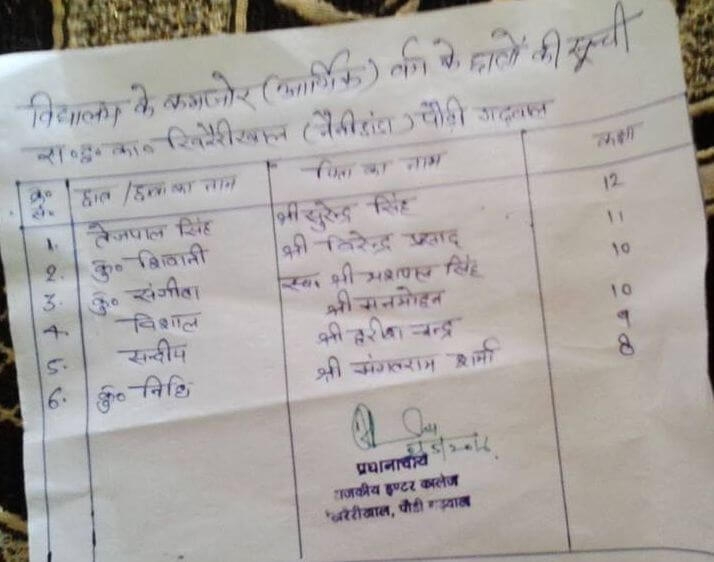 विद्यालय के कमजोर (आर्थिक) वर्ग के छात्रों की सूची
रा०इ०का० खिरेरीखाल (नैनीडांडा) पौड़ी गढ़वाल
क्र० सं० छात्र/छात्रा का नाम पिता का नाम कक्षा
1. तेजपाल सिंह श्री सुरेन्द्र सिंह 12
2. कु० शिवानी श्री विरेन्द्र प्रसाद 11
3. कु० संगीता स्व० श्री यशपाल सिंह 10
4. विशाल श्री मनमोहन 10
5. सन्दीप श्री हरीश चन्द्र 9
6. कु० निधि श्री मंगतराम शर्मा 8
प्रधानाचार्य
राजकीय इण्टर कालेज
खिरेरीखाल, पौडी गढवाल